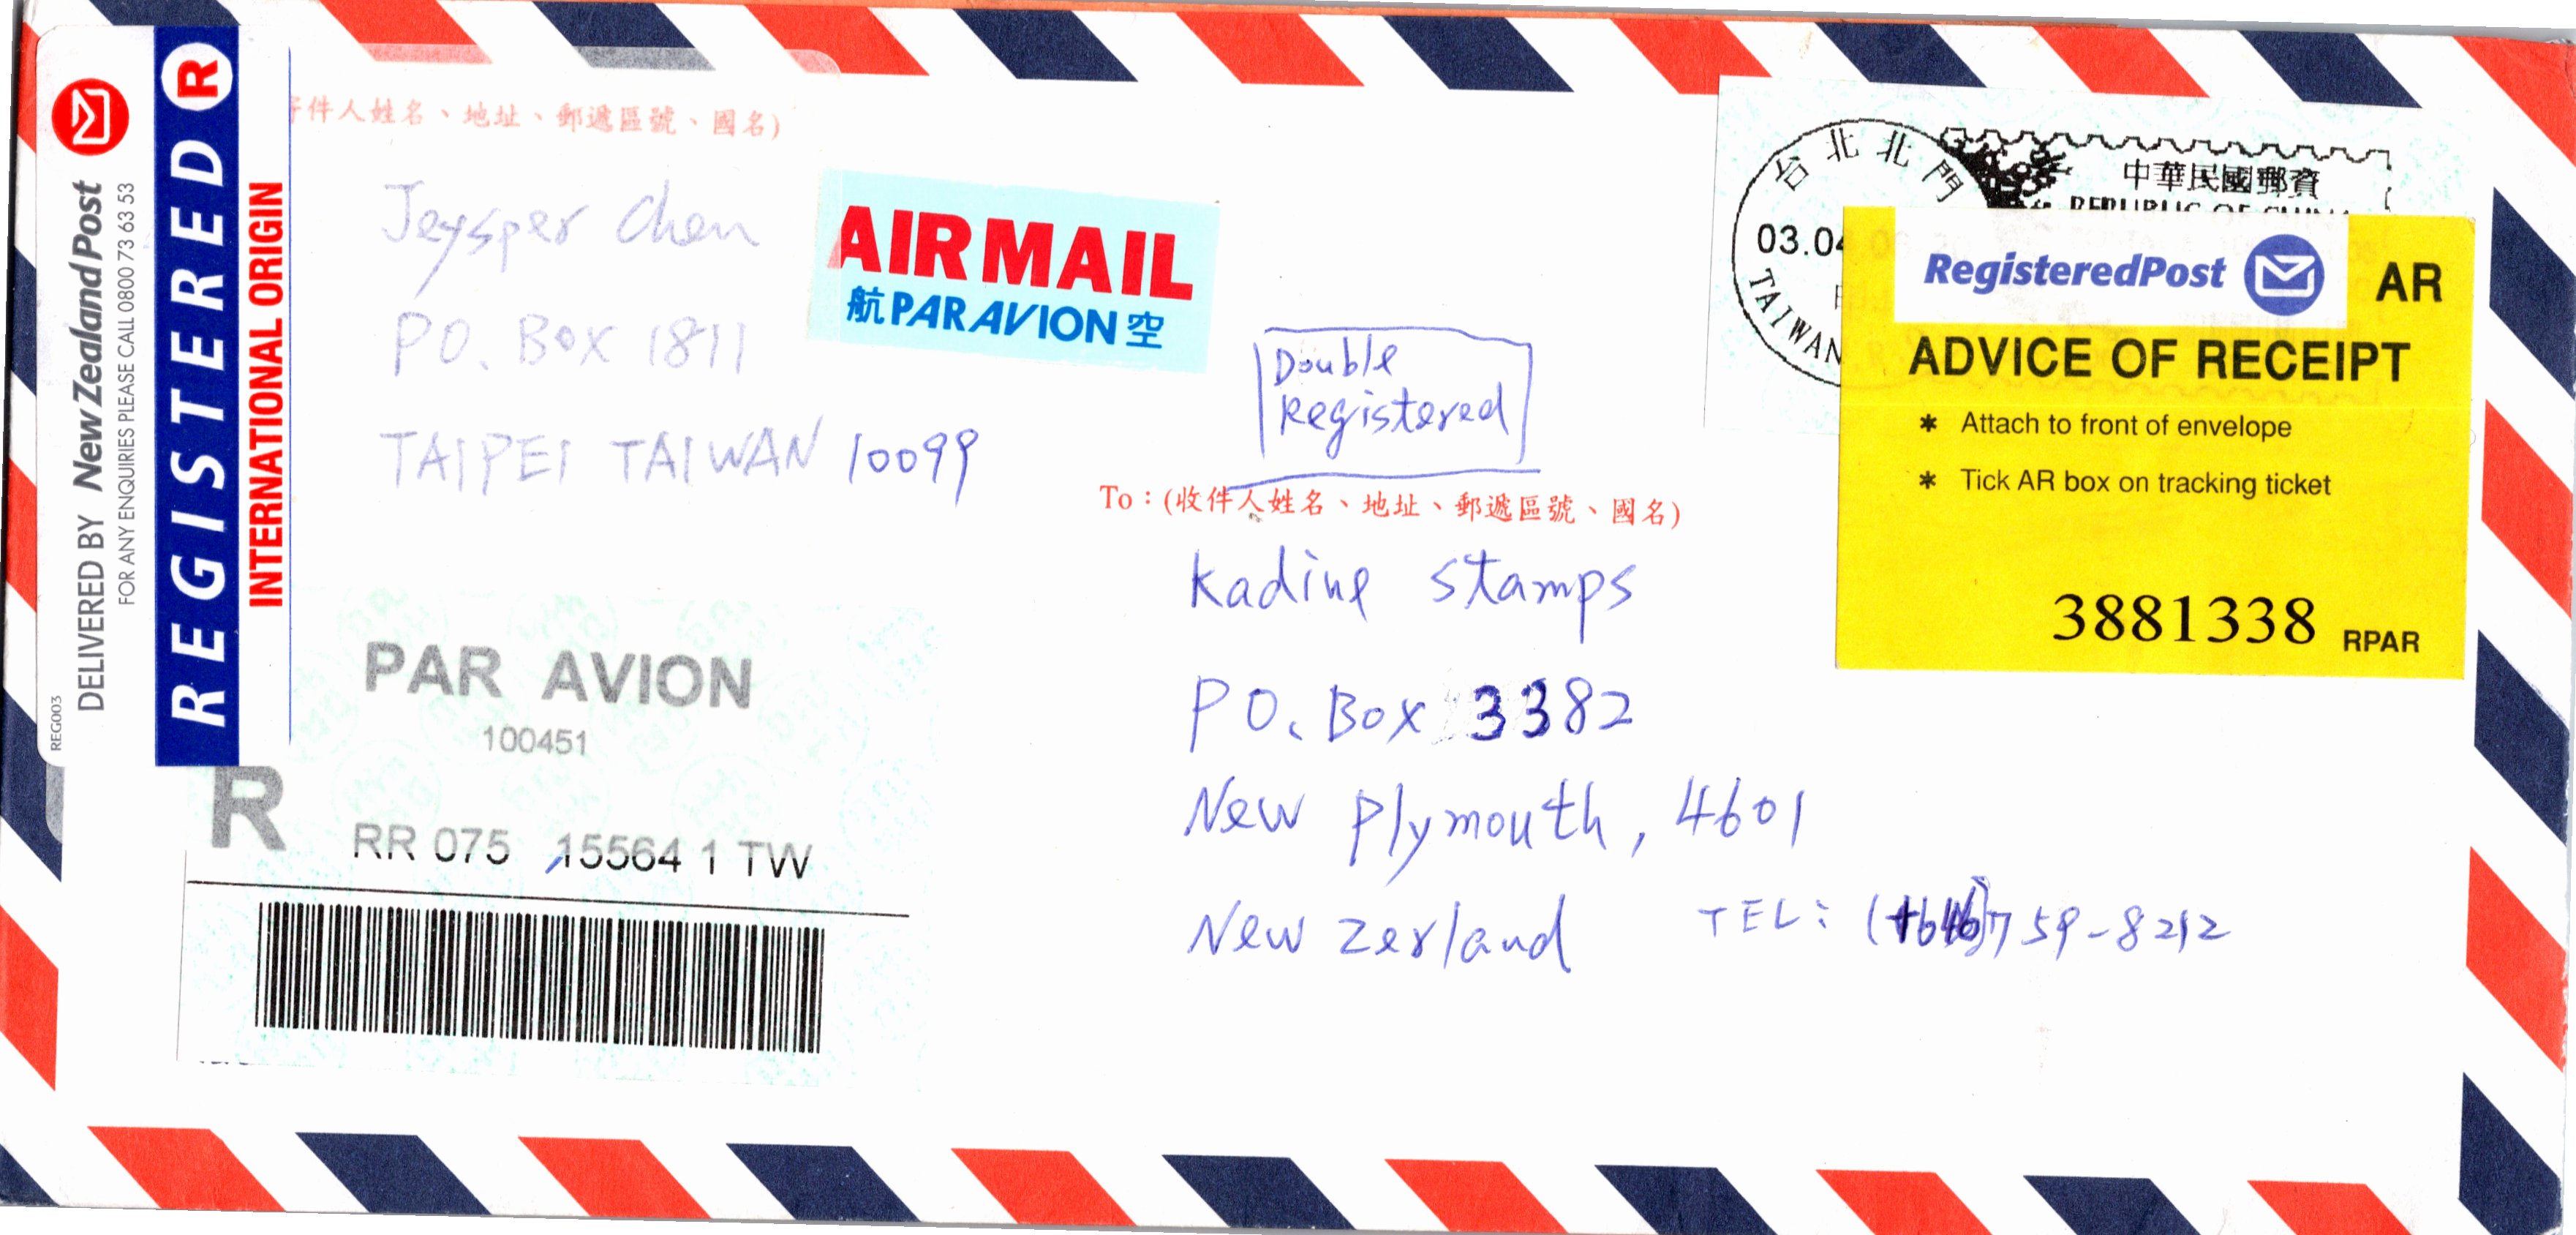 DELIVERED BY New Zealand Post
FOR ANY ENQUIRIES PLEASE CALL 0800 73 63 53
REG003
REGISTERED R
INTERNATIONAL ORIGIN
件人姓名、地址、郵遞區號、國名)
Jeysper Chen
PO. Box 1811
TAIPEI TAIWAN 10099
AIR MAIL
航 PAR AVION 空
Double
Registered
台北北門
03.04
TAIWAN
中華民國郵資
REPUBLIC OF CHINA
RegisteredPost
AR
ADVICE OF RECEIPT
* Attach to front of envelope
* Tick AR box on tracking ticket
3881338 RPAR
To：(收件人姓名、地址、郵遞區號、國名)
Kadine Stamps
PO. Box 3382
New Plymouth, 4601
New Zerland
TEL: 759-8212
PAR AVION
100451
R
RR 075 15564 1 TW